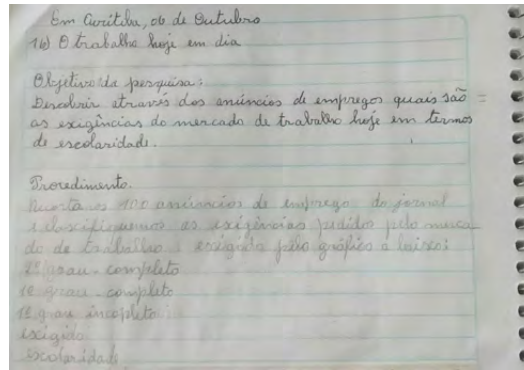 Em Curitiba, 06 de Outubro
16) O trabalho hoje em dia
Objetivo da pesquisa:
Descobrir através dos anúncios de empregos quais são
as exigências do mercado de trabalho hoje em termos
de escolaridade.
Procedimento.
100 anúncios de emprego do jornal
e classifiquemos as exigências pedidos pelo merca
do de trabalho e exigida pelo gráfico a baixo:
2º grau - completo
1º grau - completo
1º grau incopleto
exigido
escolaridade